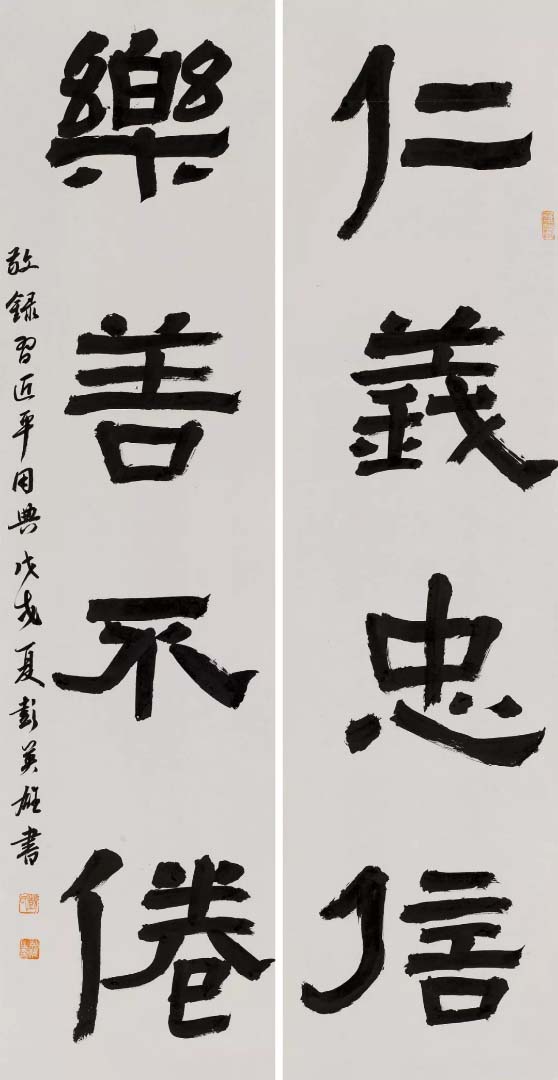 仁義忠信
樂善不倦
敬録習近平用典戊戌夏彭英雄書